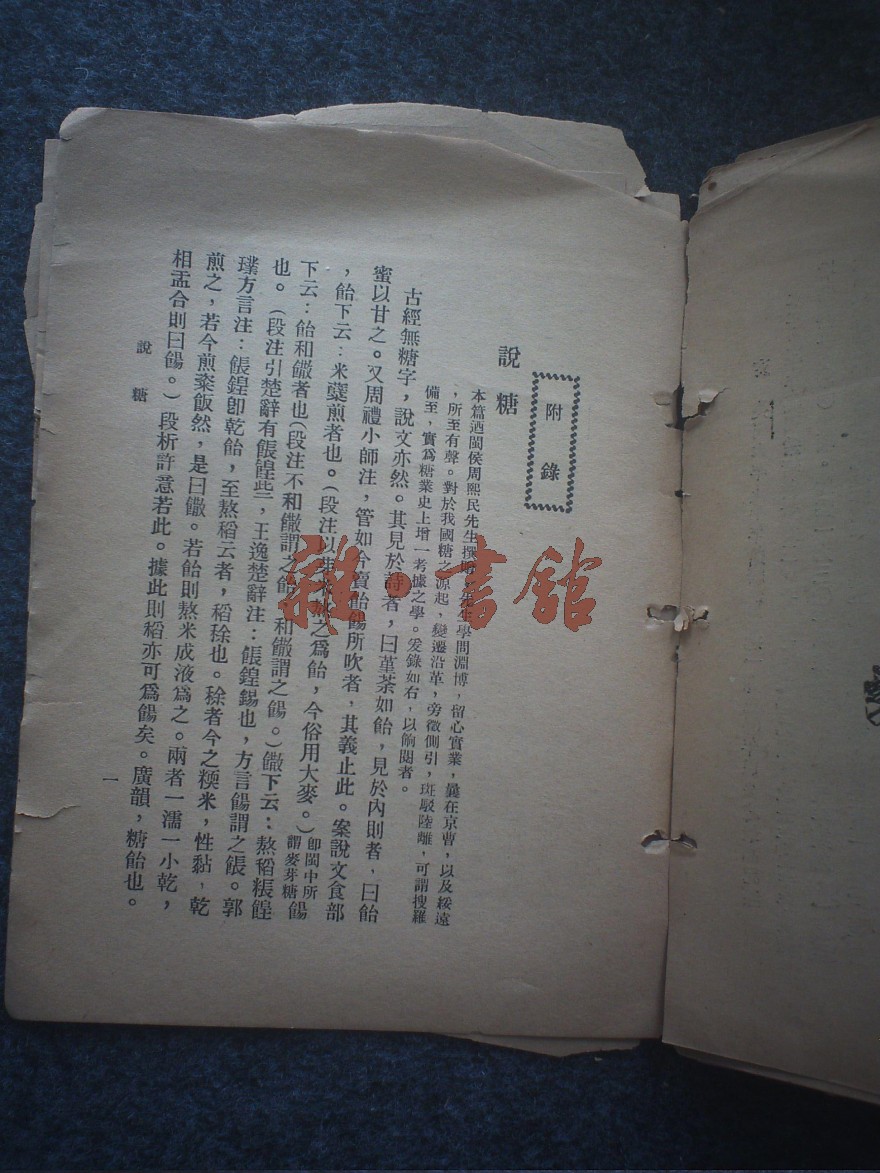 附錄
說糖
本篇迺閩侯周熙民先生撰 先生學問淵博，留心實業，曩在京曹，以及綏遠
，所至有聲。對於我國糖之源起，變遷沿革，旁徵側引，斑駁陸離，可謂搜羅
備至，實爲糖業史上增一考據之學。爰錄如右，以餉閱者。
古經無糖字，說文亦然。其見於詩者，曰堇荼如飴，見於內則者，曰飴
蜜以甘之。又周禮小師注，管如今賣飴餳所吹者，其義止此。案說文食部
，飴下云：米糱煎者也。（段注以芽米熬之爲飴，今俗用大麥。）卽閩中所謂麥芽糖餳
下云：飴和饊者也（段注不和饊謂之飴，和饊謂之餳。）饊下云：熬稻粻䅣
也。（段注引楚辭有餦餭些，王逸楚辭注：餦餭餳也，方言餳謂之餦。郭
璞方言注：餦餭卽乾飴，至熬稻云者，稻稌也。稌者今之稬米，性黏，乾
煎之，若今煎粢飯然，是曰饊。若飴則熬米成液爲之。兩者一濡一小乾，
相盂合則曰餳。）段析許意若此。據此則稻亦可爲餳矣。廣韻，糖飴也。
說糖
一
雜·書館